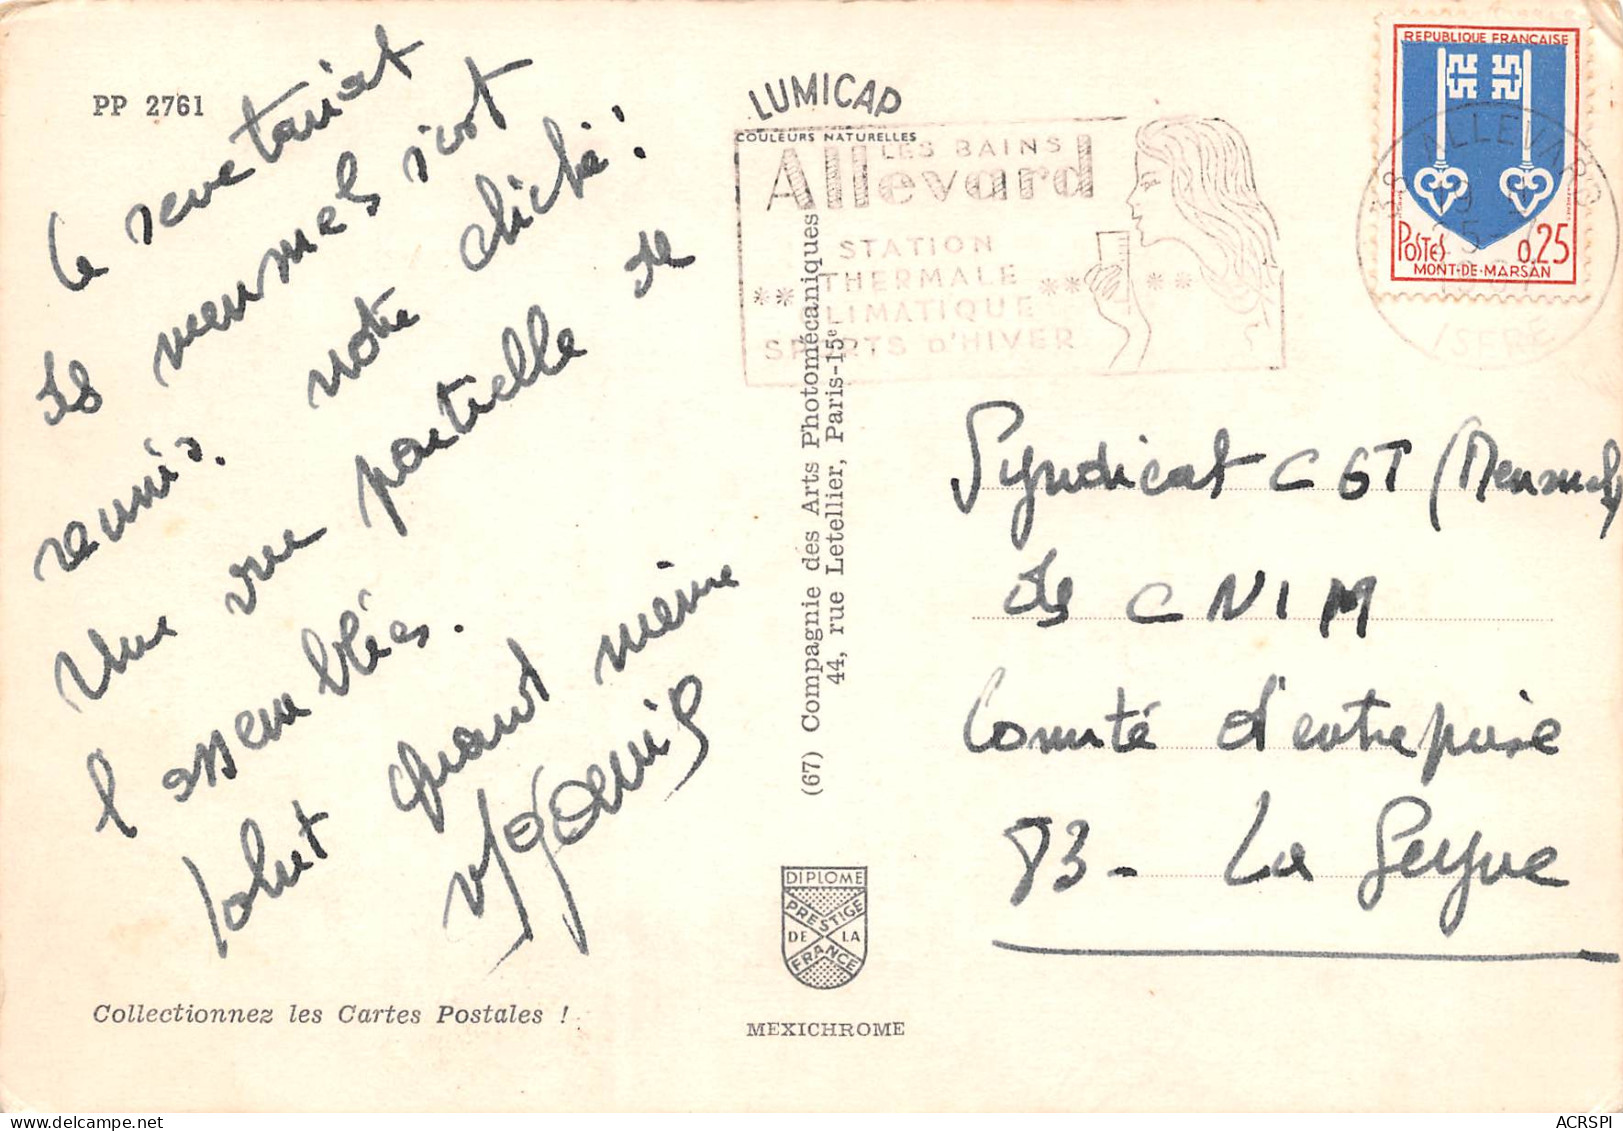 PP 2761
Le secretariat
des mensuels s'est
reunis. notre cliché!
Une vue partielle de
l'assemblées.
Salut quand même
LUMICAP
COULEURS NATURELLES
LES BAINS
Allevard
STATION
THERMALE
CLIMATIQUE
SPORTS D'HIVER
REPUBLIQUE FRANÇAISE
POSTES 0.25
MONT-DE-MARSAN
38 ALLEVARD
ISERE
(67) Compagnie des Arts Photomécaniques
44, rue Letellier, Paris-15e
Syndicat CGT (Mensuels)
des CNIM
Comité d'entreprise
83 - La Seyne
DIPLOME
PRESTIGE
DE LA
FRANCE
Collectionnez les Cartes Postales !
MEXICHROME
ACRSPI